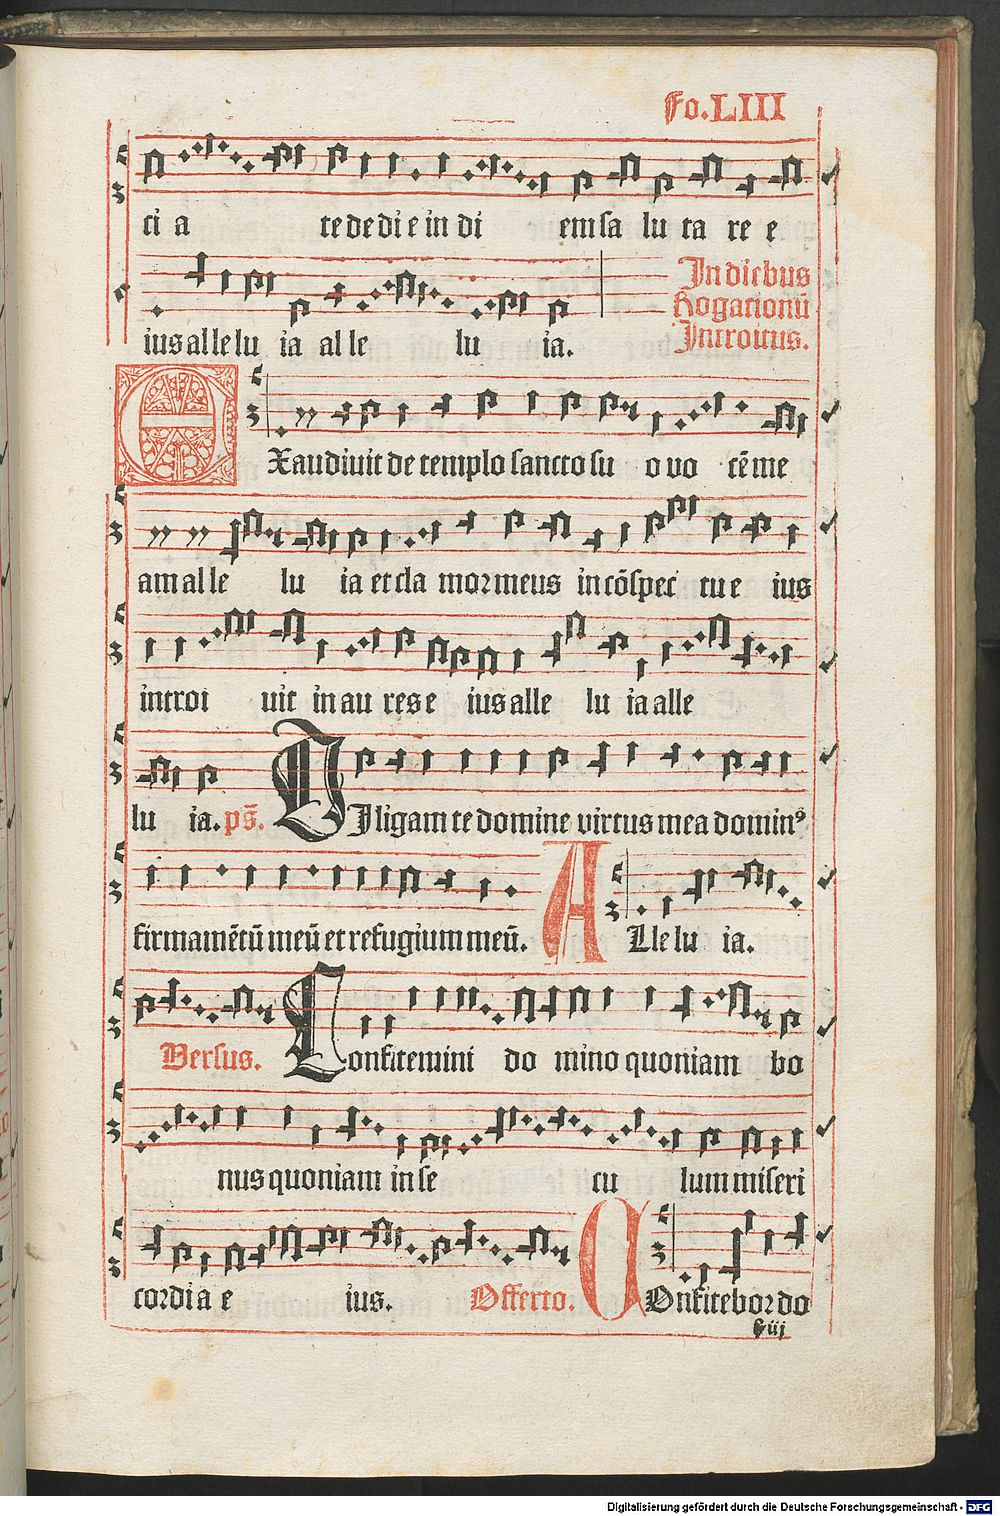 Fo.LIII
ci a te de di e in di em sa lu ta re e
In diebus
Rogationū
Introitus.
ius al le lu ia al le lu ia.
EXaudiuit de templo sancto su o vo cē me
am al le lu ia et cla mor meus in cōspec tu e ius
introi uit in au res e ius alle lu ia alle
lu ia. ps̄. DIligam te domine virtus mea domin⁹
firmamētū meū et refugium meū. ALle lu ia.
Versus. Confitemini do mino quoniam bo
nus quoniam in se cu lum miseri
cordi a e ius. Offerto. COnfitebor do
h iij
Digitalisierung gefördert durch die Deutsche Forschungsgemeinschaft - DFG